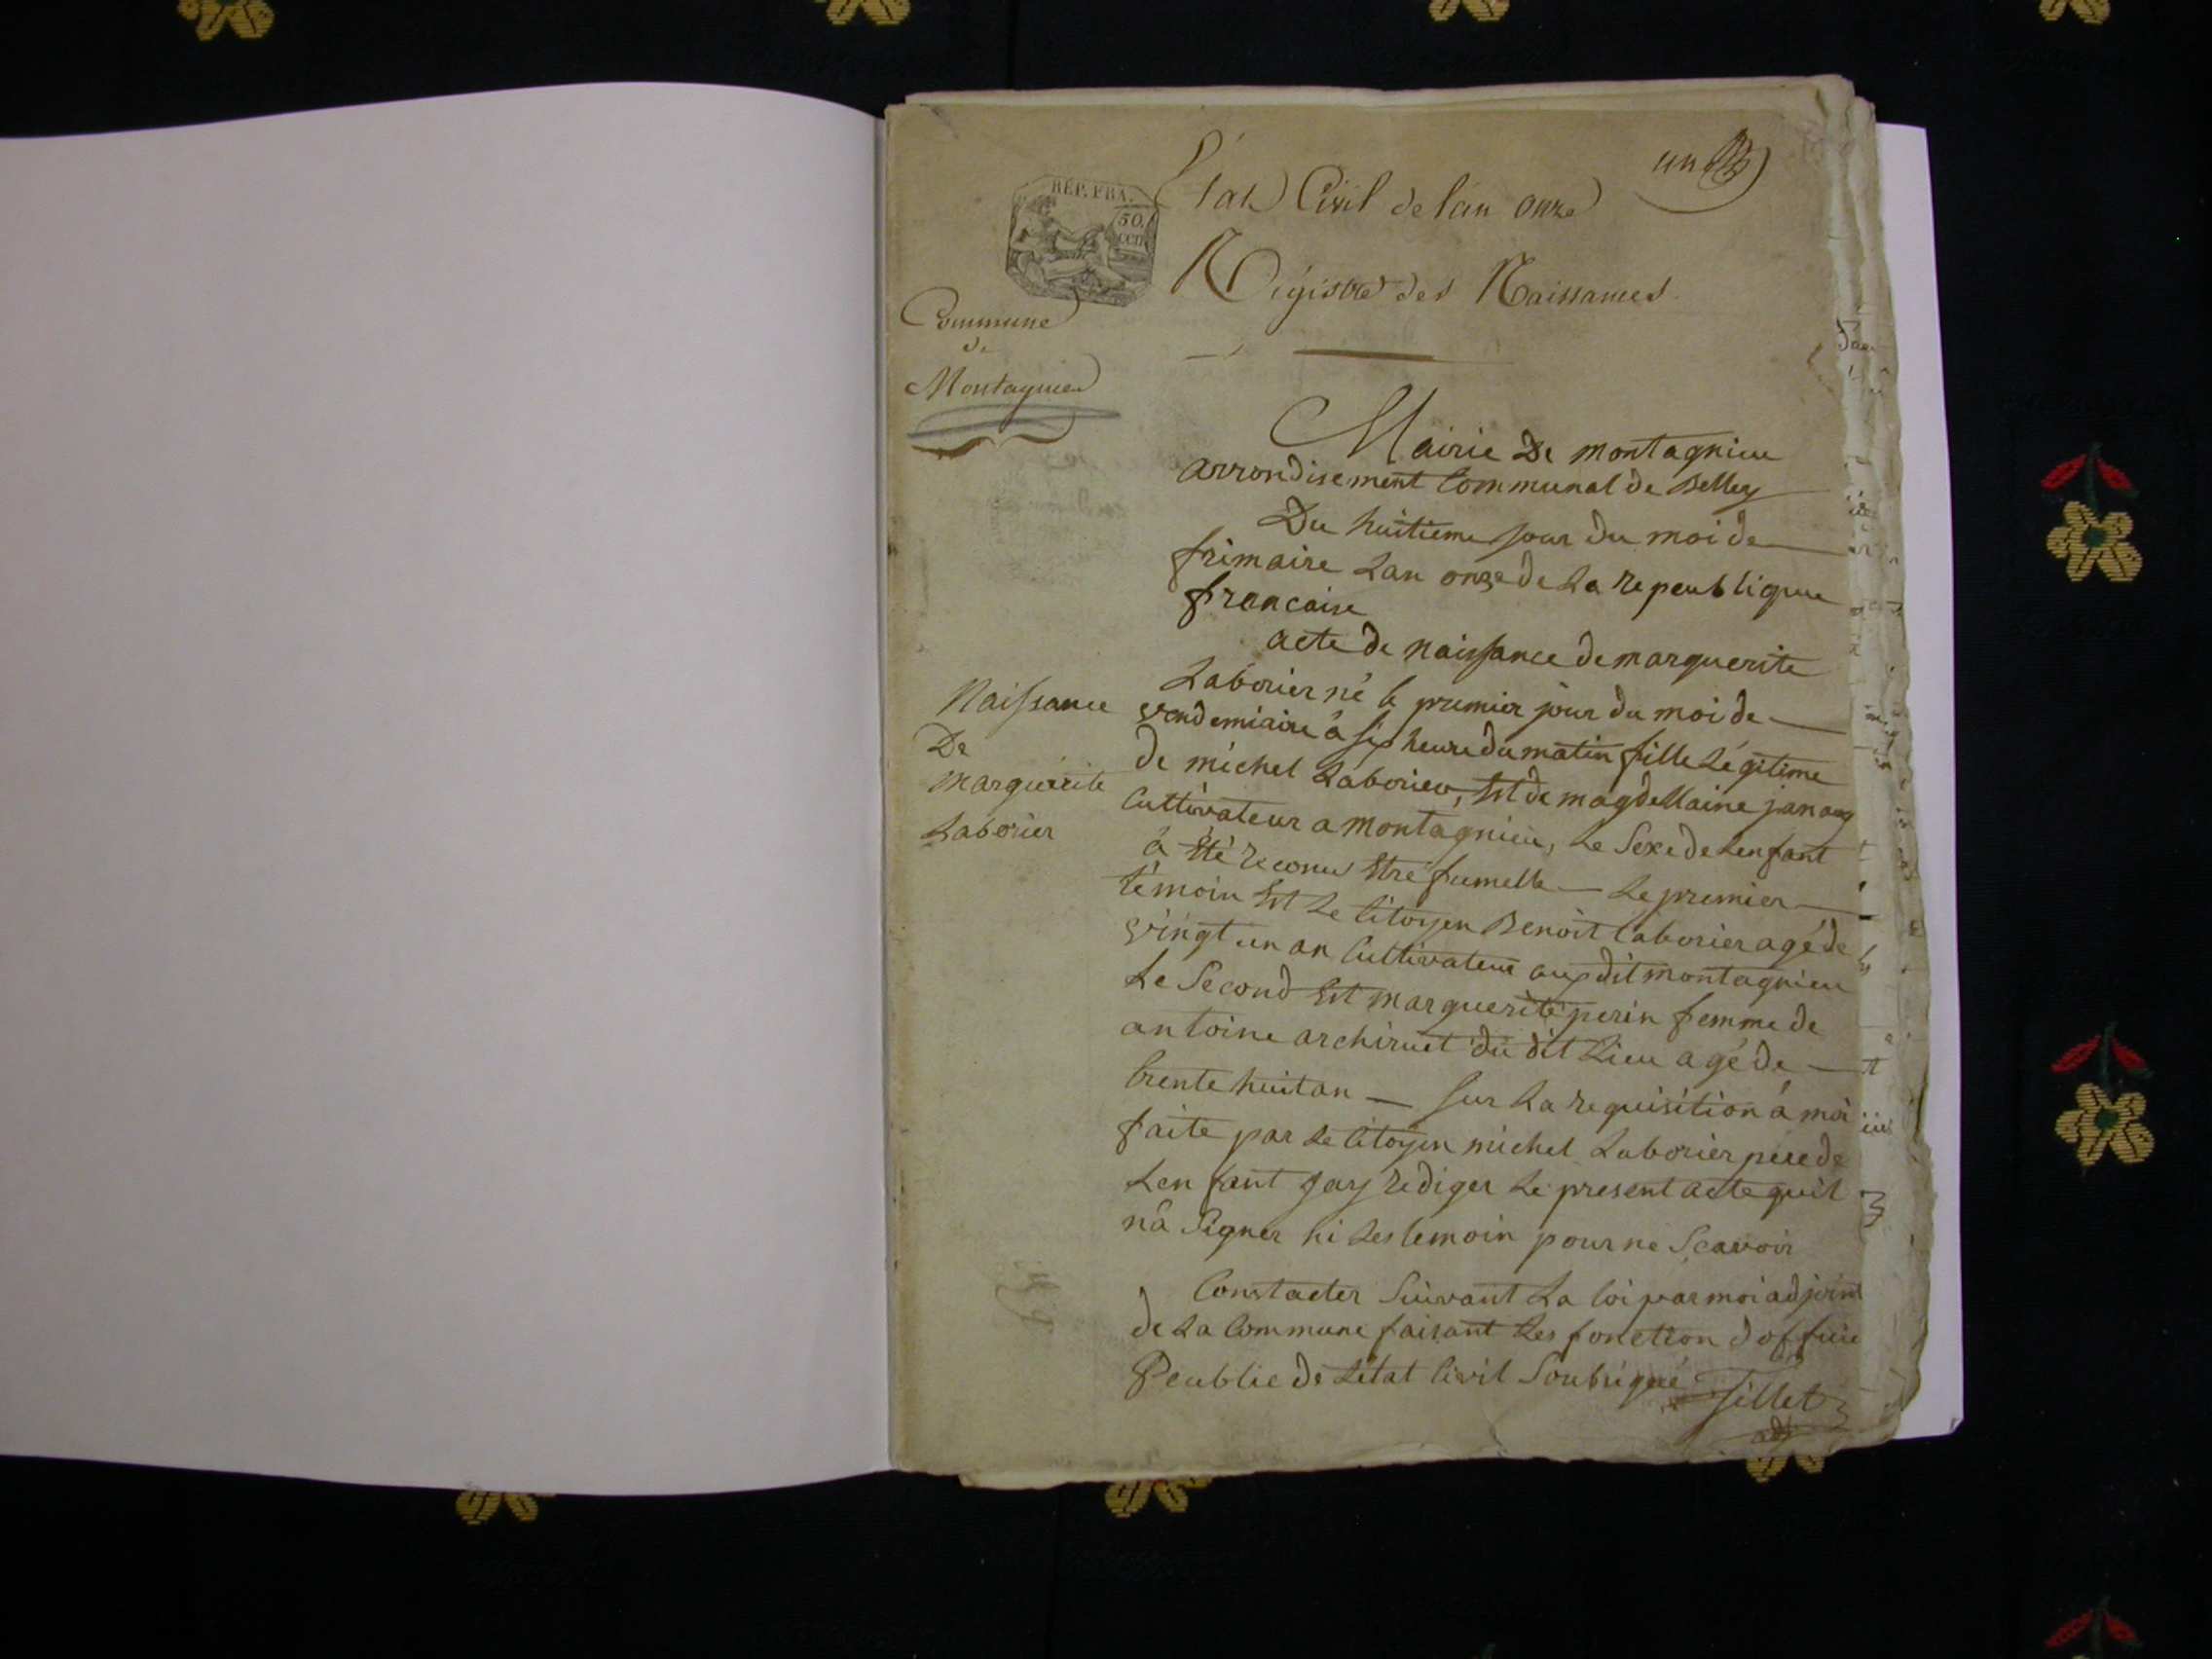 un
RÉP. FRA.
50.
CEN
État Civil de l'an onze
Régistre des Naissances
Commune
de
Montagnieu
Mairie De montagnieu
arrondisement Communal de Belley
Du huitieme jour du moi de
frimaire Lan onze de La repeublique
francaise
acte de naissance de marguerite
Laborier né le premier jour du moi de
vendemiaire à six heure du matin fille Légitime
de michel Laborier, Est de magdellaine
Cultivateur a montagnieu, Le Sexe de Lenfant
à Eté reconu Etre fumelle — Le premier
témoin Est Le Citoyen Benoit Laborier agé de
vingt un an Cultivateur au dit montagnieu
Le Second Est marguerite perin femme de
antoine archiruet du dit Lieu agé de
trente huit an — sur La requisition à moi
faite par Le Citoyen michel Laborier pere de
Lenfant jay rediger Le present acte quil
nà Signer ni Les temoin pour ne Scavoir
Constacter Suivant La loi par moi adjoint
de La Commune faisant Les fonction d officie
Peublic de Létat Civil Soubsigné
Sillet
adj
Naissance
De
marguerite
Laborier